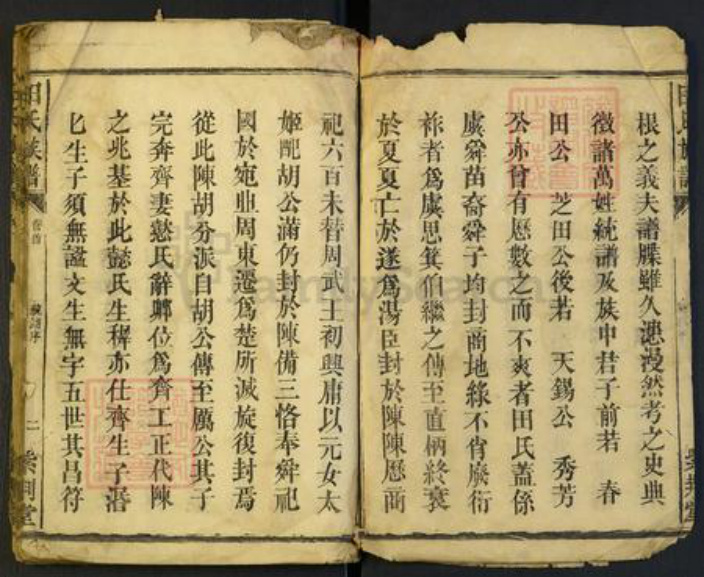 根之義夫譜牒雖久湮漫然考之史典
徵諸萬姓統譜及族中君子前若　春
田公　芝田公後若　天錫公　秀芳
公亦曾有歷數之而不爽者田氏蓋係
虞舜苗裔舜子均封商地緣不肖廢衍
祚者爲虞思箕伯繼之傳至直柄終衰
於夏夏亡於遂爲湯臣封於陳陳歷商
田氏族譜
卷首
二
紫荆堂
祀六百未替周武王初興庸以元女太
姬配胡公滿仍封於陳備三恪奉舜祀
國於宛丘周東遷爲楚所滅旋復封焉
從此陳胡分派自胡公傳至厲公其子
完奔齊妻懿氏辭卿位爲齊工正代陳
之兆基於此懿氏生穉亦仕齊生子湣
匕生子須無諡文生無宇五世其昌符